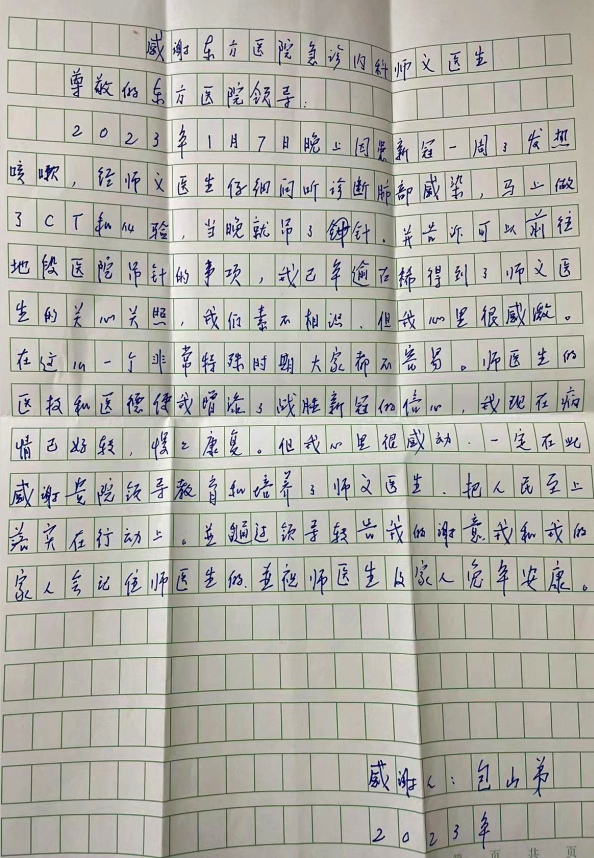 感谢东方医院急诊内科师文医生
尊敬的东方医院领导:
2023年1月7日晚上因患新冠一周了发热
咳嗽,经师文医生仔细问听诊断肺部感染,马上做
了CT和化验,当晚就吊了针。并告诉可以前往
地段医院吊针的事项,我已年逾古稀得到了师文医
生的关心关照,我们素不相识,但我心里很感激。
在这么一个非常特殊时期大家都不容易。师医生的
医技和医德使我增添了战胜新冠的信心,我现在病
情已好转,慢之康复。但我心里很感动,一定在此
感谢贵院领导教育和培养了师文医生,把人民至上
落实在行动上。并通过领导转告我的谢意,我和我的
家人会记住师医生的,並祝师医生及家人兔年安康。
感谢人:包山弟
2023年
页 共 页